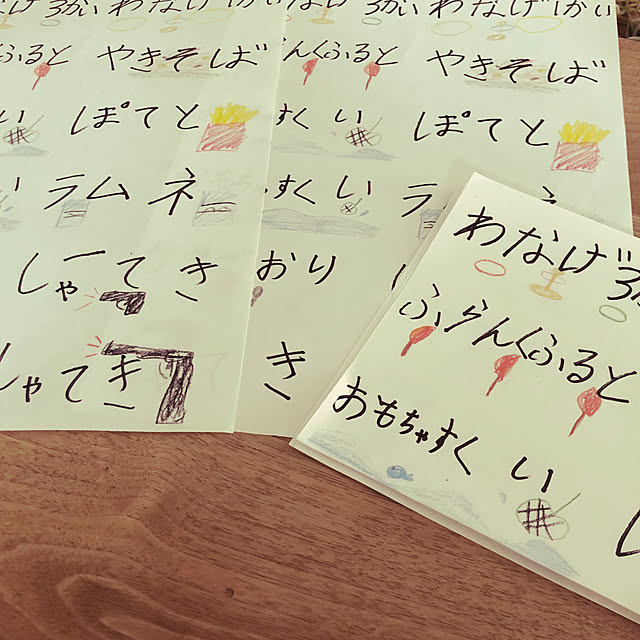 なげ 3かい わなげ1かい
ふると やきそば
い ぽてと
い ラムネ
しゃてき
しゃてき
らんくふると やきそば
すくい ぽてと
すくい ラ
おり
き
わなげ 3か
ふらんくふると
おもちゃすくい
し